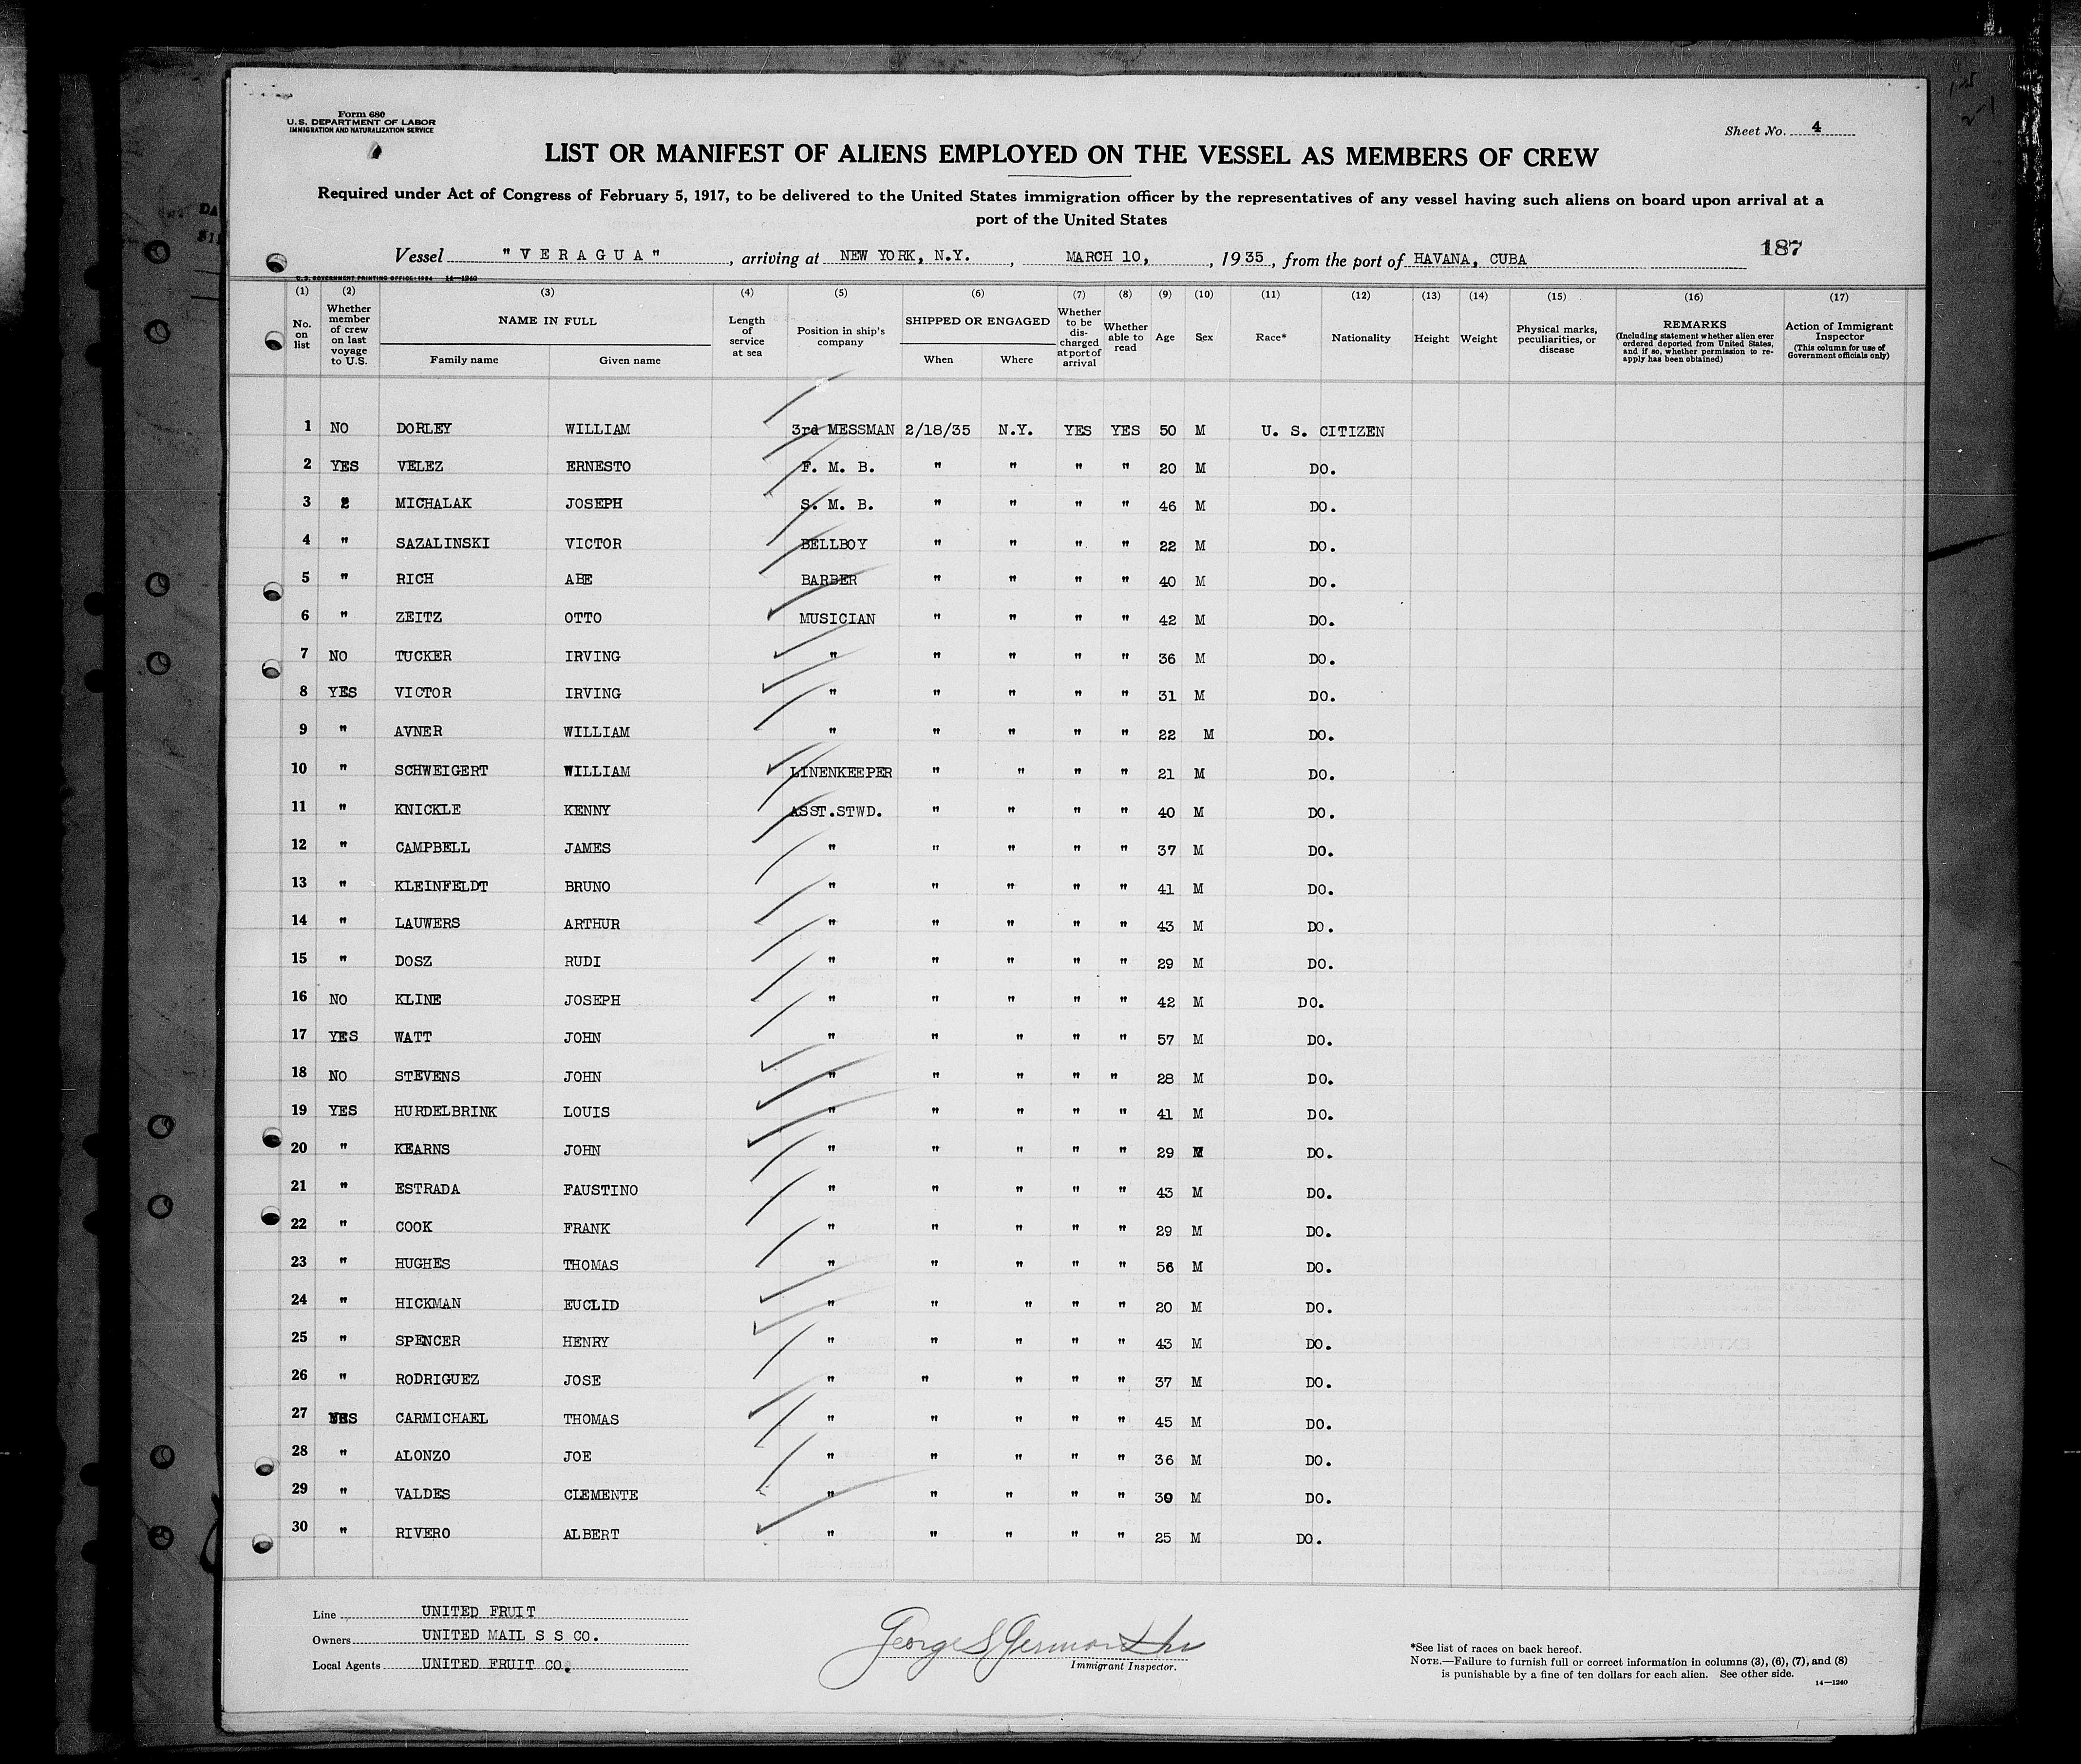 Form 680
U. S. DEPARTMENT OF LABOR
IMMIGRATION AND NATURALIZATION SERVICE
Sheet No. 4
LIST OR MANIFEST OF ALIENS EMPLOYED ON THE VESSEL AS MEMBERS OF CREW
Required under Act of Congress of February 5, 1917, to be delivered to the United States immigration officer by the representatives of any vessel having such aliens on board upon arrival at a
port of the United States
187
Vessel "VERAGUA", arriving at NEW YORK, N.Y., MARCH 10, , 1935, from the port of HAVANA, CUBA
U. S. GOVERNMENT PRINTING OFFICE: 1934 14—1240
(1) (2) (3) (4) (5) (6) (7) (8) (9) (10) (11) (12) (13) (14) (15) (16) (17)
No. on list
Whether member of crew on last voyage to U.S.
NAME IN FULL
Family name Given name
Length of service at sea
Position in ship's company
SHIPPED OR ENGAGED
When Where
Whether to be discharged at port of arrival
Whether able to read
Age
Sex
Race*
Nationality
Height
Weight
Physical marks, peculiarities, or disease
REMARKS
(Including statement whether alien ever ordered deported from United States, and if so, whether permission to re-apply has been obtained)
Action of Immigrant Inspector
(This column for use of Government officials only)
1 NO DORLEY WILLIAM 3rd MESSMAN 2/18/35 N.Y. YES YES 50 M U. S. CITIZEN
2 YES VELEZ ERNESTO F. M. B. " " " " 20 M DO.
3 MICHALAK JOSEPH S. M. B. " " " " 46 M DO.
4 " SAZALINSKI VICTOR BELLBOY " " " " 22 M DO.
5 " RICH ABE BARBER " " " " 40 M DO.
6 " ZEITZ OTTO MUSICIAN " " " " 42 M DO.
7 NO TUCKER IRVING " " " " " 36 M DO.
8 YES VICTOR IRVING " " " " " 31 M DO.
9 " AVNER WILLIAM " " " " " 22 M DO.
10 " SCHWEIGERT WILLIAM LINENKEEPER " " " " 21 M DO.
11 " KNICKLE KENNY ASST.STWD. " " " " 40 M DO.
12 " CAMPBELL JAMES " " " " " 37 M DO.
13 " KLEINFELDT BRUNO " " " " " 41 M DO.
14 " LAUWERS ARTHUR " " " " " 43 M DO.
15 " DOSZ RUDI " " " " " 29 M DO.
16 NO KLINE JOSEPH " " " " " 42 M DO.
17 YES WATT JOHN " " " " " 57 M DO.
18 NO STEVENS JOHN " " " " " 28 M DO.
19 YES HURDELBRINK LOUIS " " " " " 41 M DO.
20 " KEARNS JOHN " " " " " 29 M DO.
21 " ESTRADA FAUSTINO " " " " " 43 M DO.
22 " COOK FRANK " " " " " 29 M DO.
23 " HUGHES THOMAS " " " " " 56 M DO.
24 " HICKMAN EUCLID " " " " " 20 M DO.
25 " SPENCER HENRY " " " " " 43 M DO.
26 " RODRIGUEZ JOSE " " " " " 37 M DO.
27 YES CARMICHAEL THOMAS " " " " " 45 M DO.
28 " ALONZO JOE " " " " " 36 M DO.
29 " VALDES CLEMENTE " " " " " 30 M DO.
30 " RIVERO ALBERT " " " " " 25 M DO.
Line UNITED FRUIT
Owners UNITED MAIL S S CO.
Local Agents UNITED FRUIT CO.
George S
Immigrant Inspector.
*See list of races on back hereof.
NOTE.—Failure to furnish full or correct information in columns (3), (6), (7), and (8)
is punishable by a fine of ten dollars for each alien. See other side.
14—1240